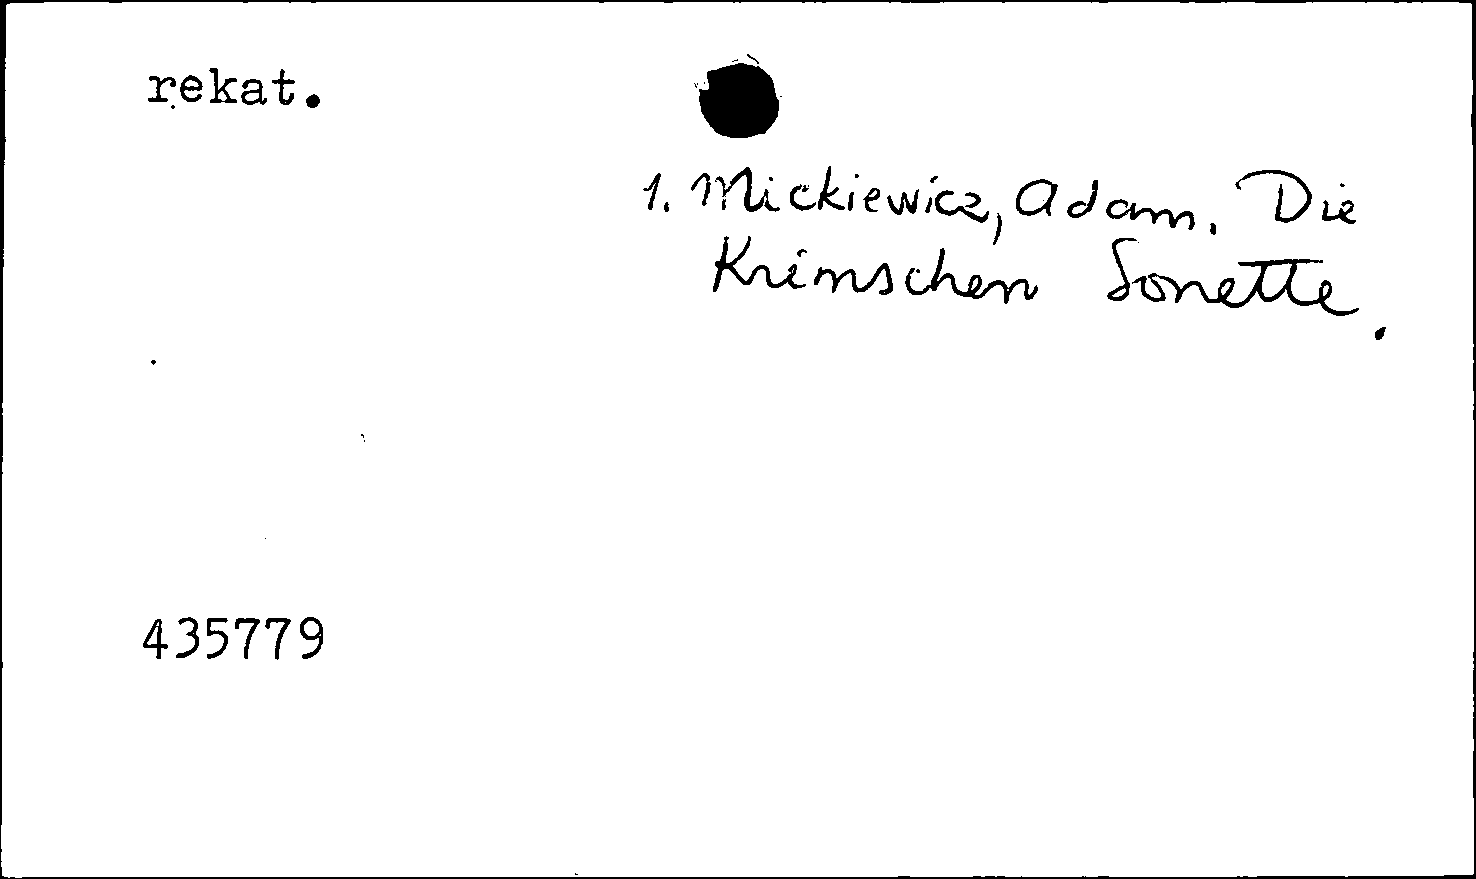 rekat.
1. Mickiewicz, Adam. Die
Krimschen Sonette.
435779